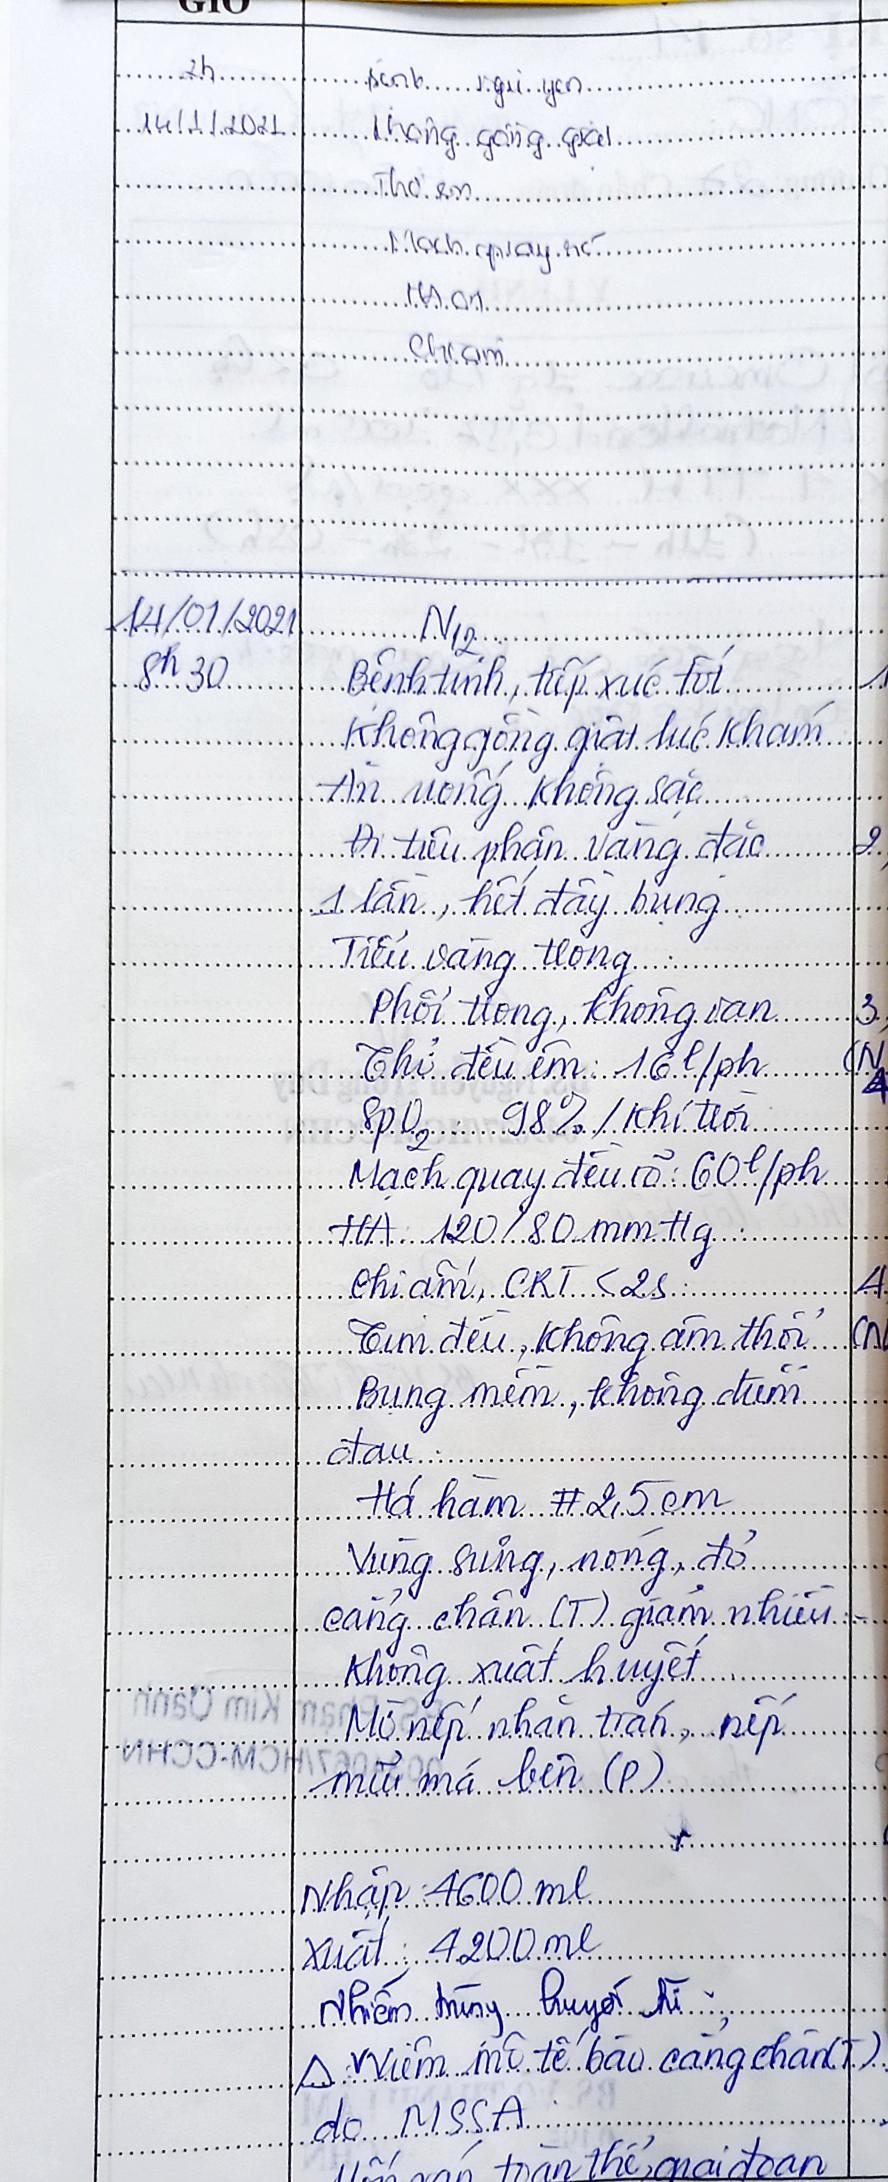 GIỜ
2h
Bệnh nằm yên
14/1/2021 Không gồng giật
Thở êm
Mạch quay rõ
HA ổn
Chi ấm
14/01/2021 N12
8h30 Bệnh tỉnh, tiếp xúc tốt 1
Không gồng giật lúc khám
Ăn uống không sặc
Đi tiêu phân vàng đặc 2,
1 lần, hết đầy bụng
Tiểu vàng trong
Phổi trong, không ran 3,
Thở đều êm: 16 l/ph (N
SpO2: 98% / khí trời
Mạch quay đều rõ: 60 l/ph
HA: 120/80 mmHg
Chi ấm, CRT < 2s 4
Tim đều, không âm thổi
Bụng mềm, không điểm
đau
Há hàm # 2,5 cm
Vùng sưng, nóng, đỏ
cẳng chân (T) giảm nhiều
Không xuất huyết
Mờ nếp nhăn trán, nếp
mũi má bên (P)
Nhập: 4600 ml
Xuất: 4200 ml
Nhiễm trùng huyết
Δ: Viêm mô tế bào cẳng chân (T)
do MSSA
Uốn ván toàn thể, giai đoạn